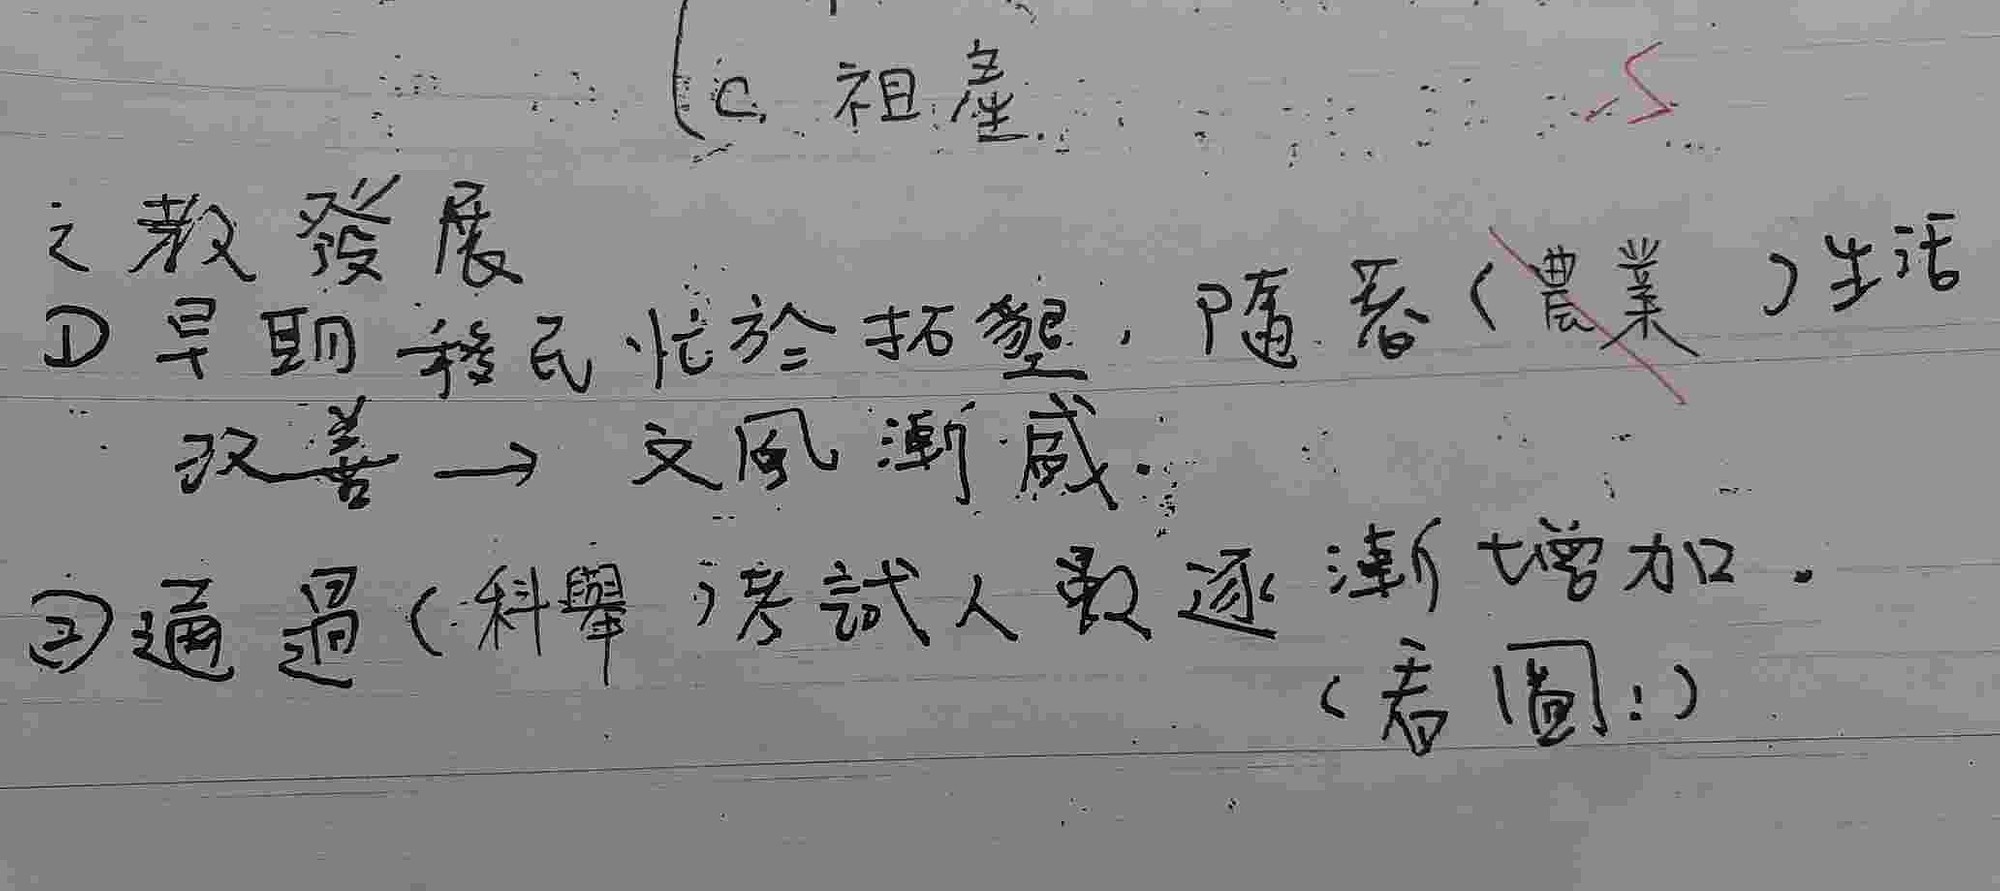 C. 祖產
之教發展
①早期移民忙於拓墾,隨著(農業)生活
改善→文風漸盛.
②通過(科舉)考試人數逐漸增加.
(看圖!)